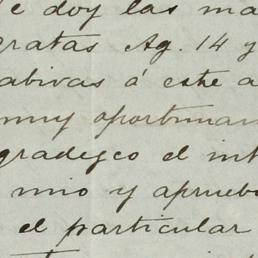 le doy las ma
gratas Ag. 14 y
ativas á este a
muy oportunam
gradezco el int
mio y aprueb
el particular